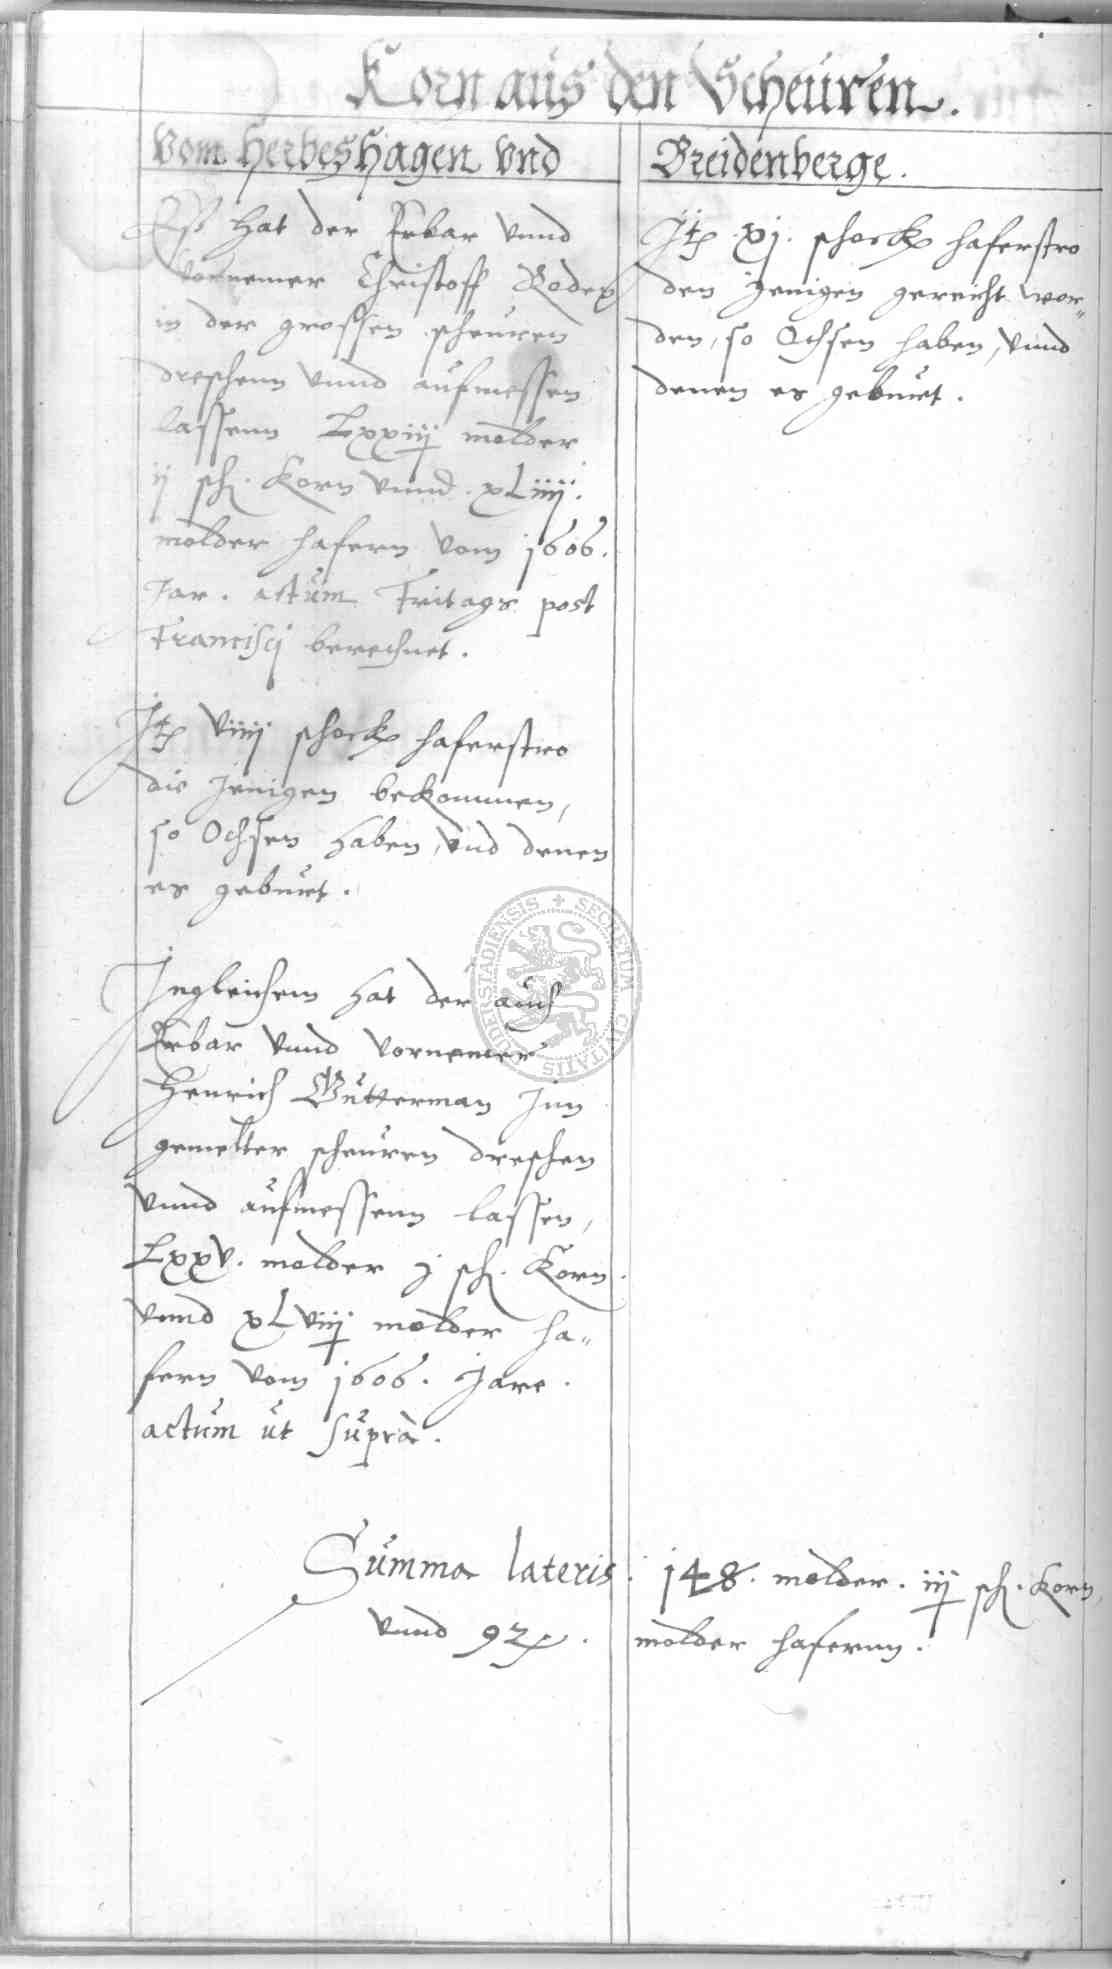 Korn aus den Scheuren.
Vom Herbeshagen vnd
Breidenberge.
Esß hat der Erbar vnnd
vornemer Christoff Roden
in der grossen scheuren
dreschenn vnnd aufmessen
lassenn Lxxiiij molder
ij sch. Korn vnnd xLiiij.
molder hafern vom 1606.
Jar. actum Fritags post
Francisci berechnet.
Itē viiij schock haferstro
die jenigen bekommen,
so Ochsen haben, vnd denen
es geburet.
Ingleichem hat der auch
Erbar vnnd vornemer
Henrich Gutterman Inn
gemelter scheuren dreschen
vnnd aufmessenn lassen,
Lxxv. molder j sch. Korn.
vnnd xLviij molder ha„
fern vom 1606. Jare.
actum ut suprà.
Itē xj. schock haferstro
den jenigen gereicht wor„
den, so Ochsen haben, vnnd
denen es geburet.
Summa lateris: 148. molder. iij sch. Korn,
vnnd 92. molder hafernn.
SECRETUM CIVITATIS DUDERSTADIENSIS